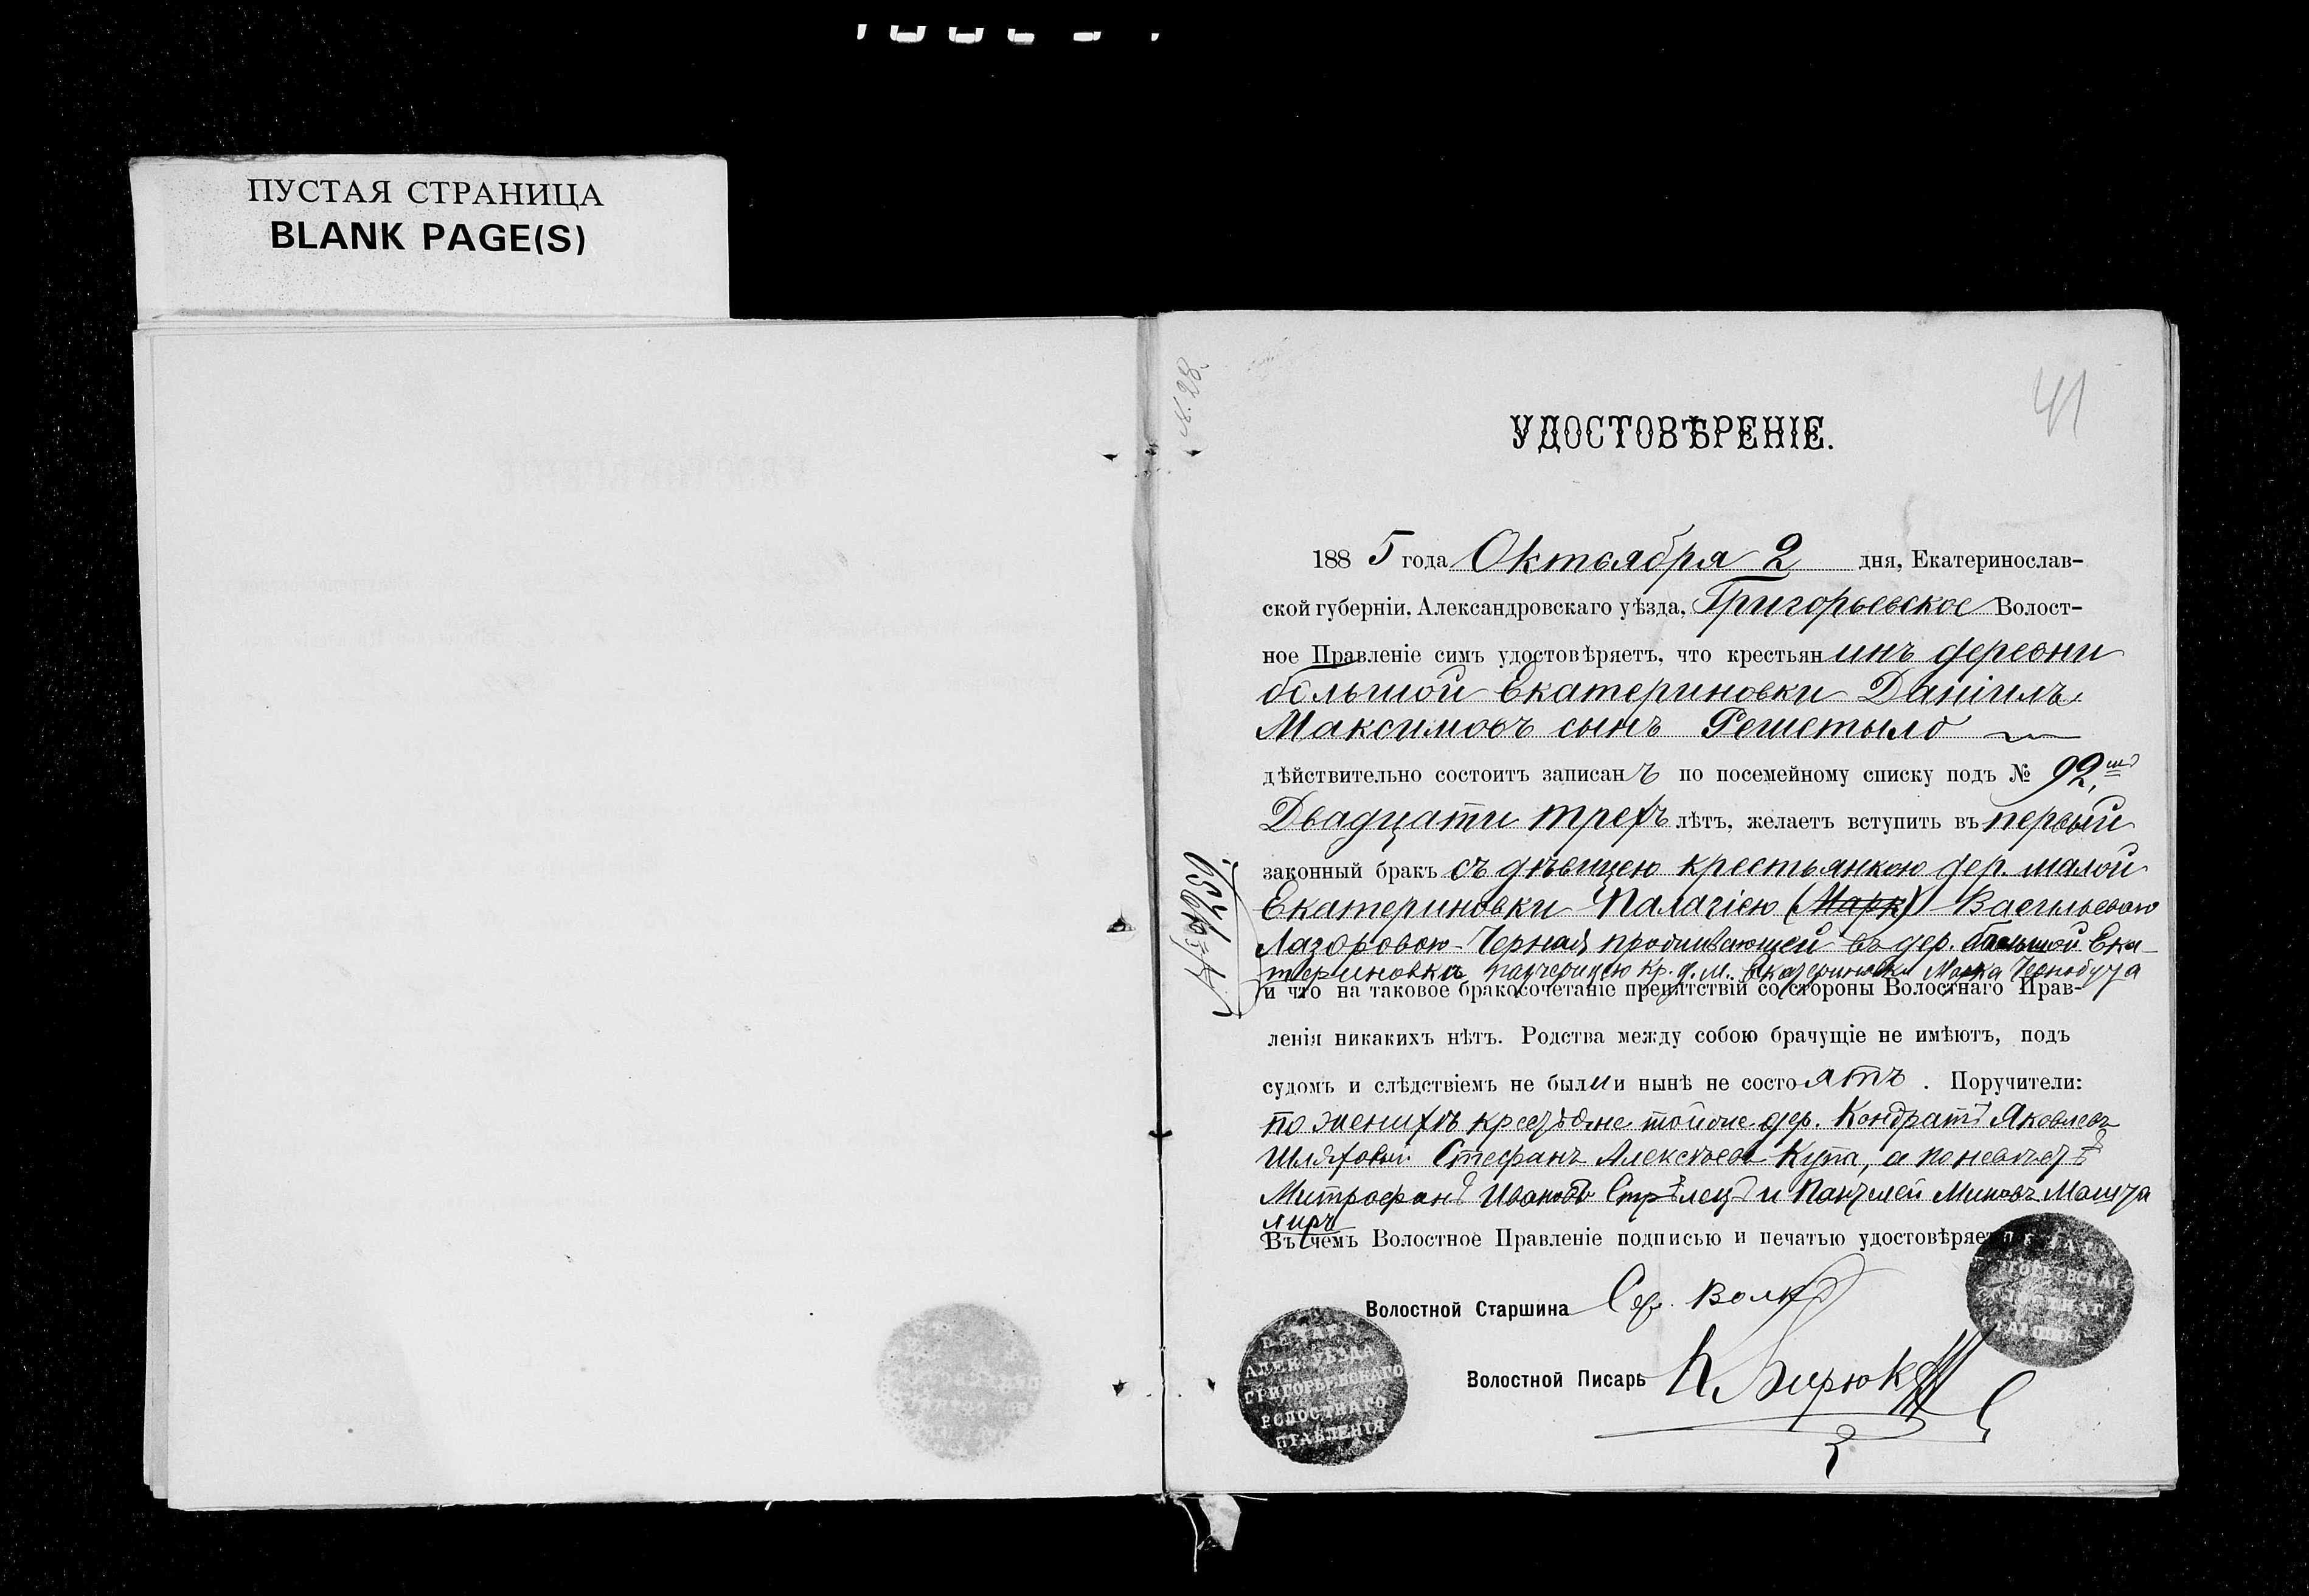 ПУСТАЯ СТРАНИЦА
BLANK PAGE(S)
№. 28.
41
УДОСТОВѢРЕНІЕ.
188 5 года Октоября 2 дня, Екатеринослав-
ской губерніи, Александровскаго уѣзда, Григорьевское Волост-
ное Правленіе симъ удостовѣряетъ, что крестьянинъ деревни
большой Екатериновки Даніилъ
Максимовъ сынъ Решетыло
дѣйствительно состоитъ записанъ по посемейному списку подъ № 92,
Двадцати трехъ лѣтъ, желаетъ вступить въ первый
законный бракъ съ дѣвицею крестьянкою дер. малой
Екатериновки Палагіею (Марк) Васильевою
Лазоровою-Черная, проживающей въ дер. большой Ека-
териновки падчерицею кр. д. м. Екатериновки Марка Чернобуга
и что на таковое бракосочетаніе препятствій со стороны Волостнаго Прав-
ленія никакихъ нѣтъ. Родства между собою брачущіе не имѣютъ, подъ
судомъ и слѣдствіемъ не были и нынѣ не состоятъ. Поручители:
по женихѣ крестьяне тойже дер. Кондратъ Яковлевъ
Стефанъ Алексѣевъ Купа, а по невѣстѣ
Митрофанъ Ивановъ Стрѣлецъ и Пантелей
Въ чемъ Волостное Правленіе подписью и печатью удостовѣряетъ
Волостной Старшина Сер. Волкъ
Волостной Писарь Бирюк
ПЕЧАТЬ
АЛЕК. УѢЗДА
ГРИГОРЬЕВСКАГО
ВОЛОСТНАГО
ПРАВЛЕНІЯ